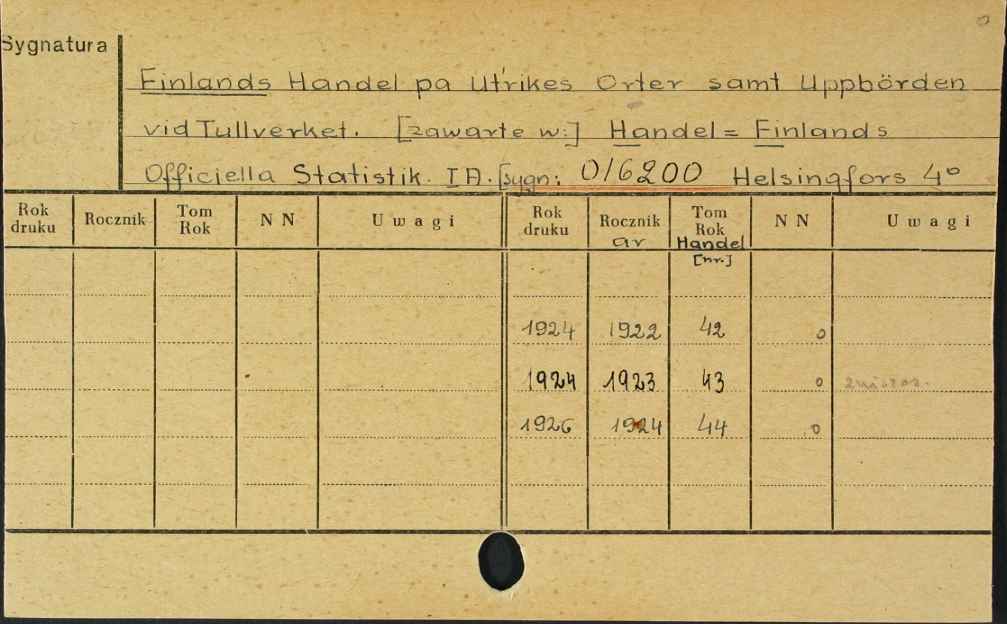 Sygnatura
Finlands Handel pa Utrikes Orter samt Uppbörden
vid Tullverket. [zawarte w:] Handel = Finlands
Officiella Statistik. IA. [sygn: 016200 Helsingfors 4°
Rok druku Rocznik Tom Rok NN Uwagi Rok druku Rocznik ar Tom Rok Handel [nr.] NN Uwagi
1924 1922 42 0
1924 1923 43 0
1926 1924 44 0